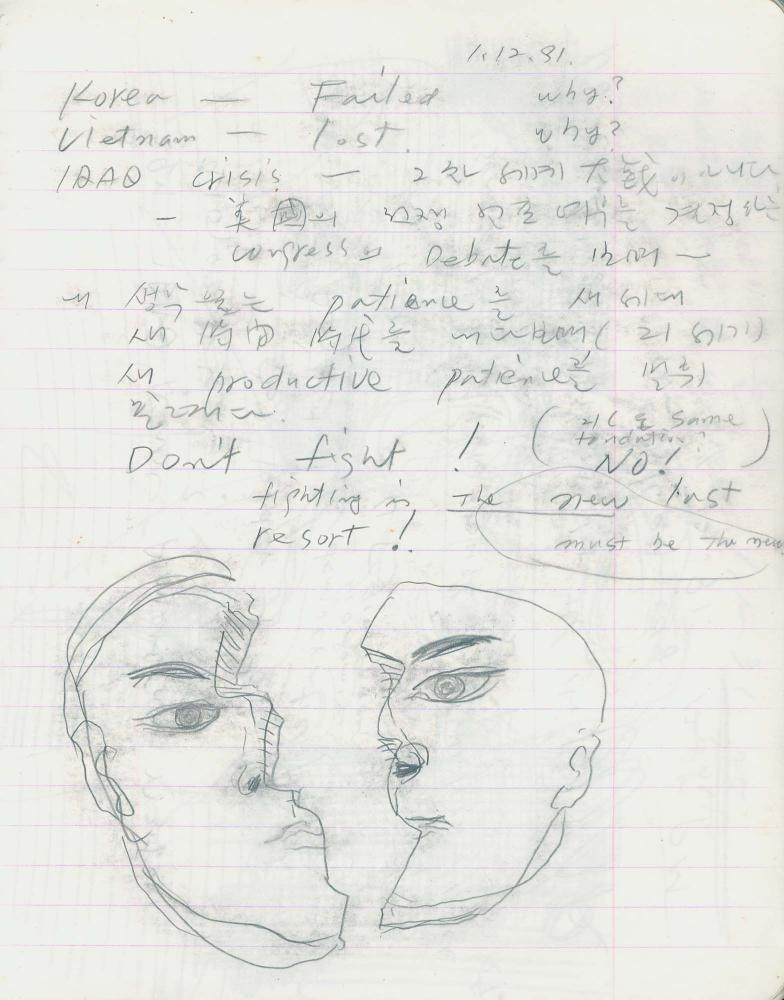 1.12.91.
Korea — Failed why?
Vietnam — lost. why?
IRAQ crisis — 2차 세계 大戰이 아니다
— 美國의 전쟁 인호 여부를 결정하는
congress의 Debate를 보며 —
내 생각 patience를 새 세대
새 時代를 내다보며 ( 21 세기)
새 productive patience를
Don't fight ! ( 21C도 same
NO! )
fighting is the new last
resort ! must be the new